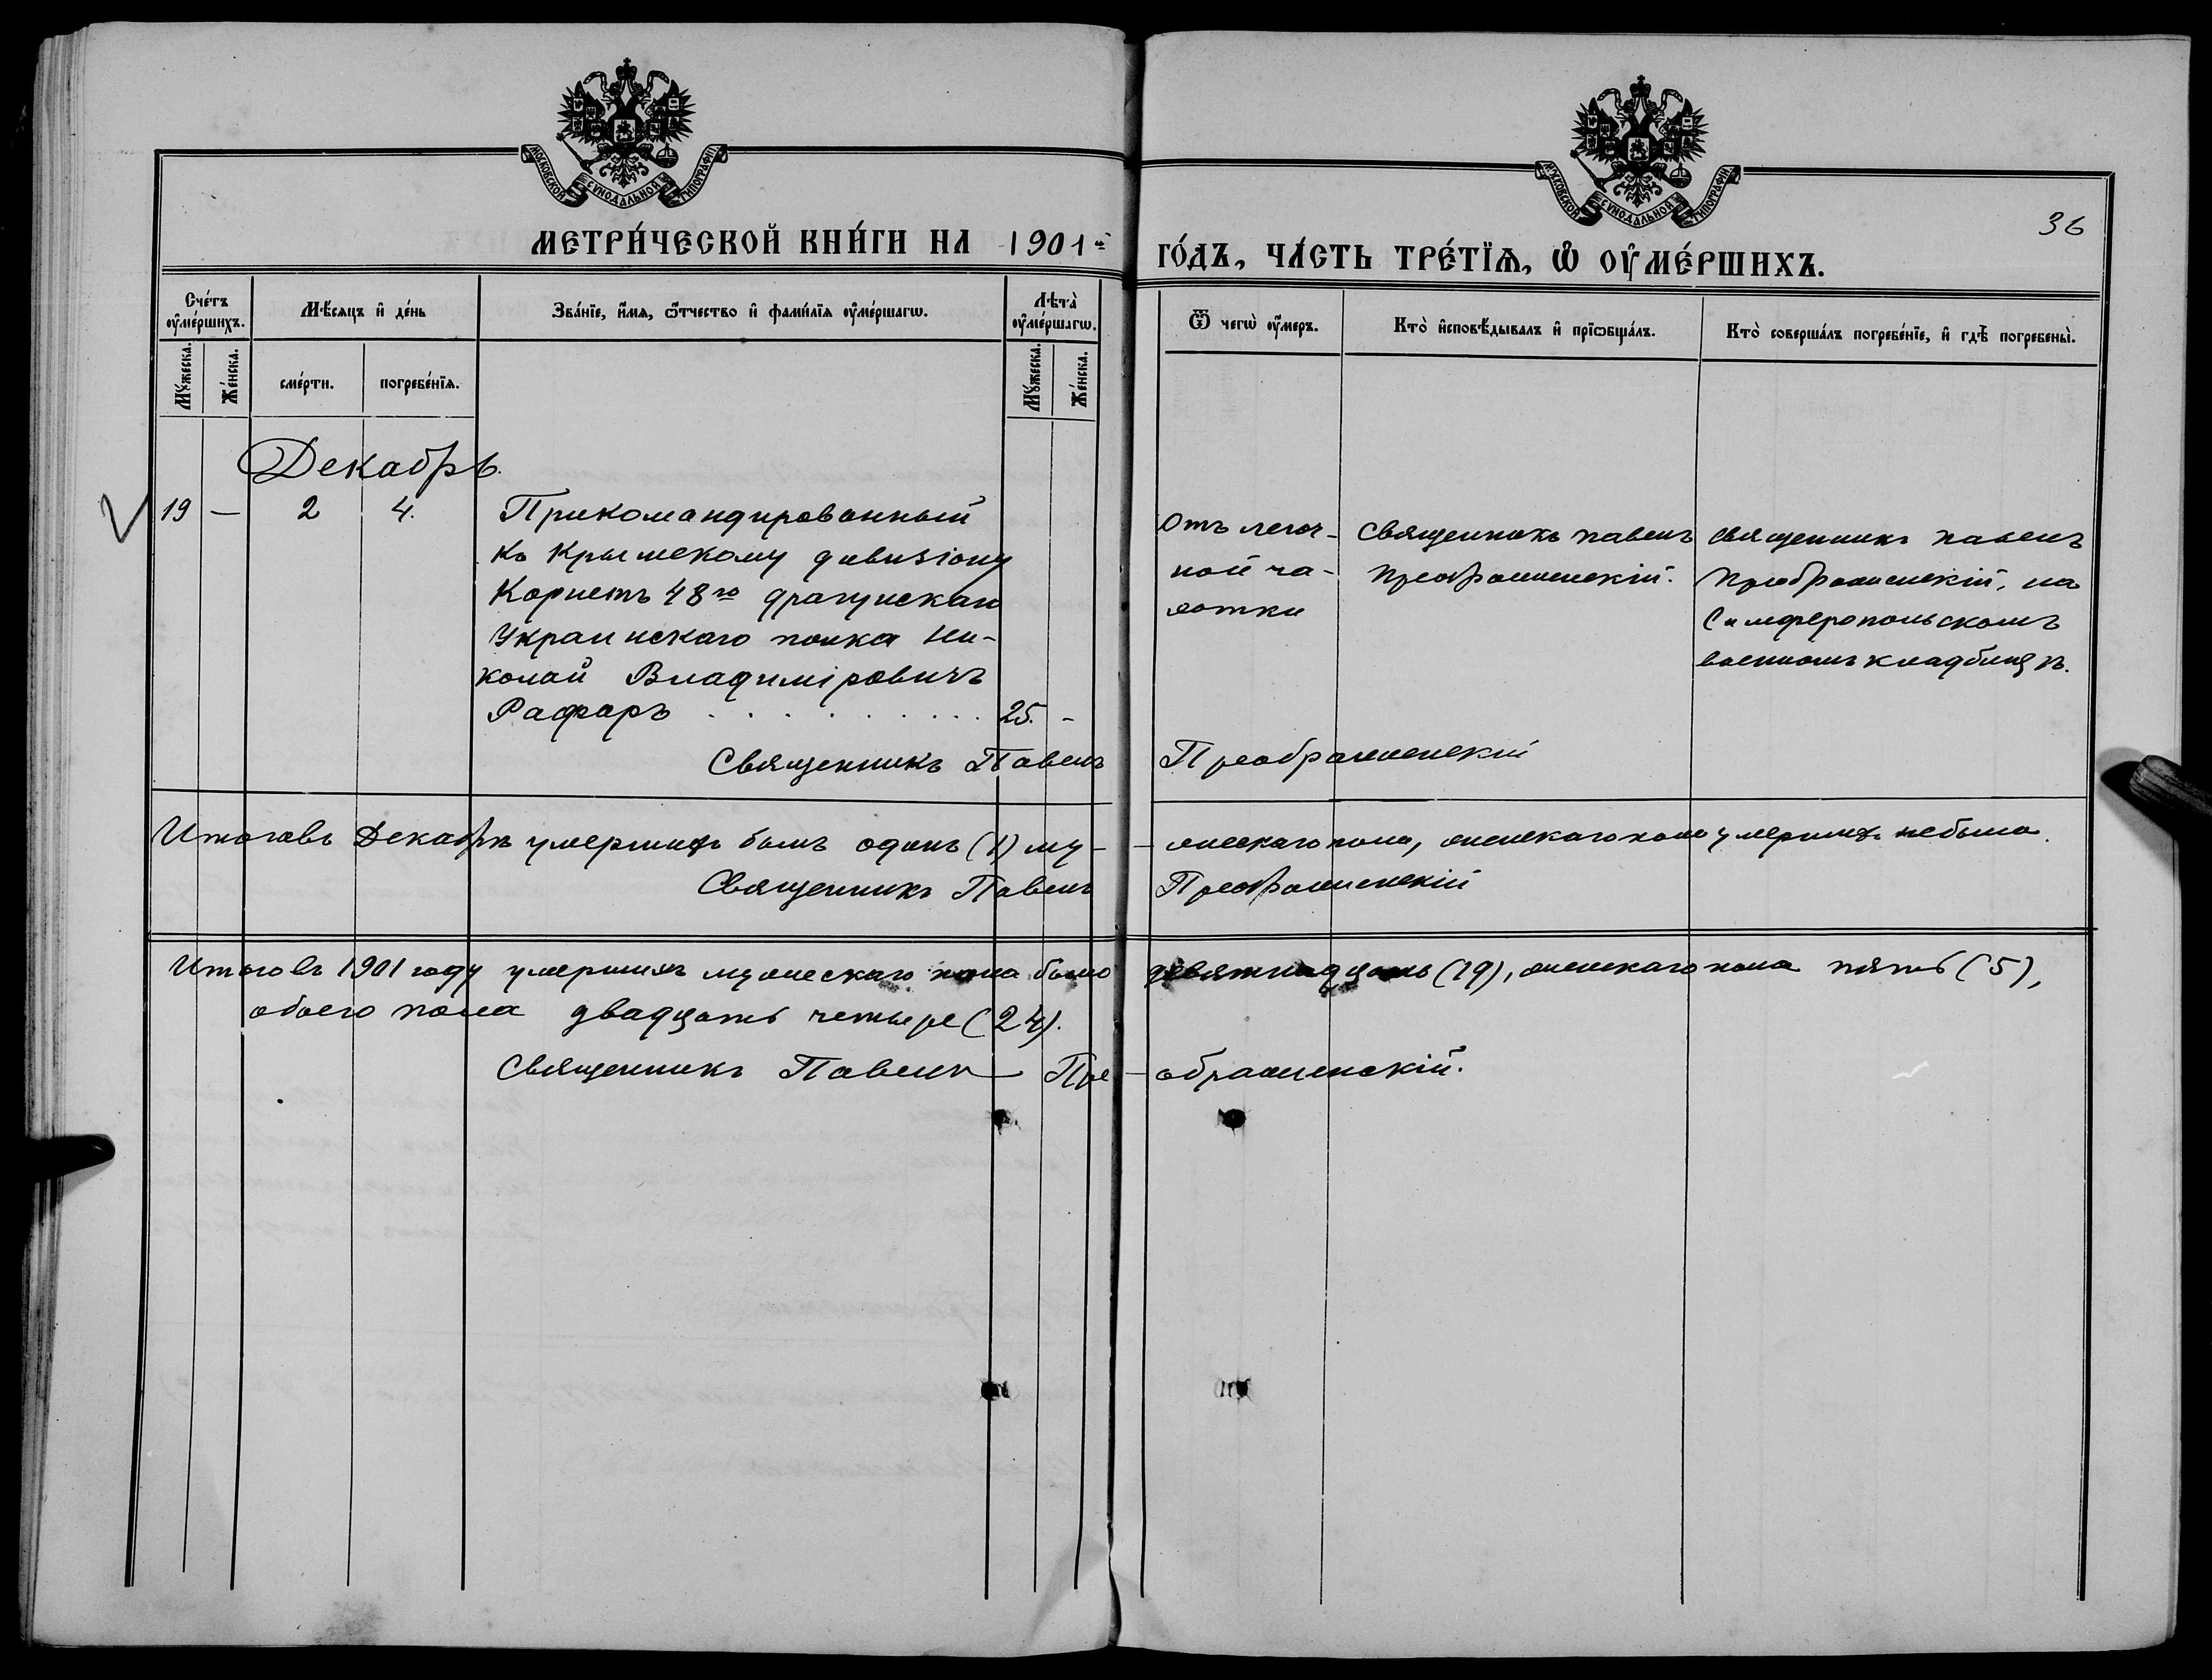 МОСКОВСКОЙ СУНОДАЛЬНОЙ ТИПОГРАФІИ
МОСКОВСКОЙ СУНОДАЛЬНОЙ ТИПОГРАФІИ
36
МЕТРИ́ЧЕСКОЙ КНИ́ГИ НА 1901й ГО́ДЪ, ЧА́СТЬ ТРЕ́ТІѦ, Ѡ ОУ҆МЕ́РШИХЪ.
Сче́тъ оу҆ме́ршихъ.
Мѣ́сяцъ и҆ де́нь
Зва́нїе, и҆́мѧ, ѻ҆́тчество и҆ фами́лїѧ оу҆ме́ршагѡ.
Лѣта̀ оу҆ме́ршагѡ.
Ѿ чегѡ̀ оу҆́меръ.
Кто̀ и҆сповѣ́дывалъ и҆ прїѻбща́лъ.
Кто̀ соверша́лъ погребе́нїе, и҆ гдѣ̀ погребены̀.
Мꙋ́жеска.
Же́нска.
сме́рти.
погребе́нїѧ.
Мꙋ́жеска.
Же́нска.
Декабрь.
19 — 2 4. Прикомандированный
къ Крымскому дивизіону
Корнетъ 48го драгунскаго
Украинскаго полка Ни-
колай Владиміровичъ
Рафаръ . . . . . . . . 25. -
Отъ легоч-
ной ча-
хотки
Священникъ Павелъ
Преображенскій.
Священникъ Павелъ
Преображенскій, на
Симферопольскомъ
военномъ кладбищѣ.
Священникъ Павелъ Преображенскій
Итого въ Декабрѣ умершихъ былъ одинъ (1) му-
-жескаго пола, женскаго пола умершихъ не было.
Священникъ Павелъ Преображенскій
Итого въ 1901 году умершихъ мужескаго пола было девятнадцать (19), женскаго пола пять (5),
обоего пола двадцать четыре (24).
Священникъ Павелъ — Пре-ображенскій.